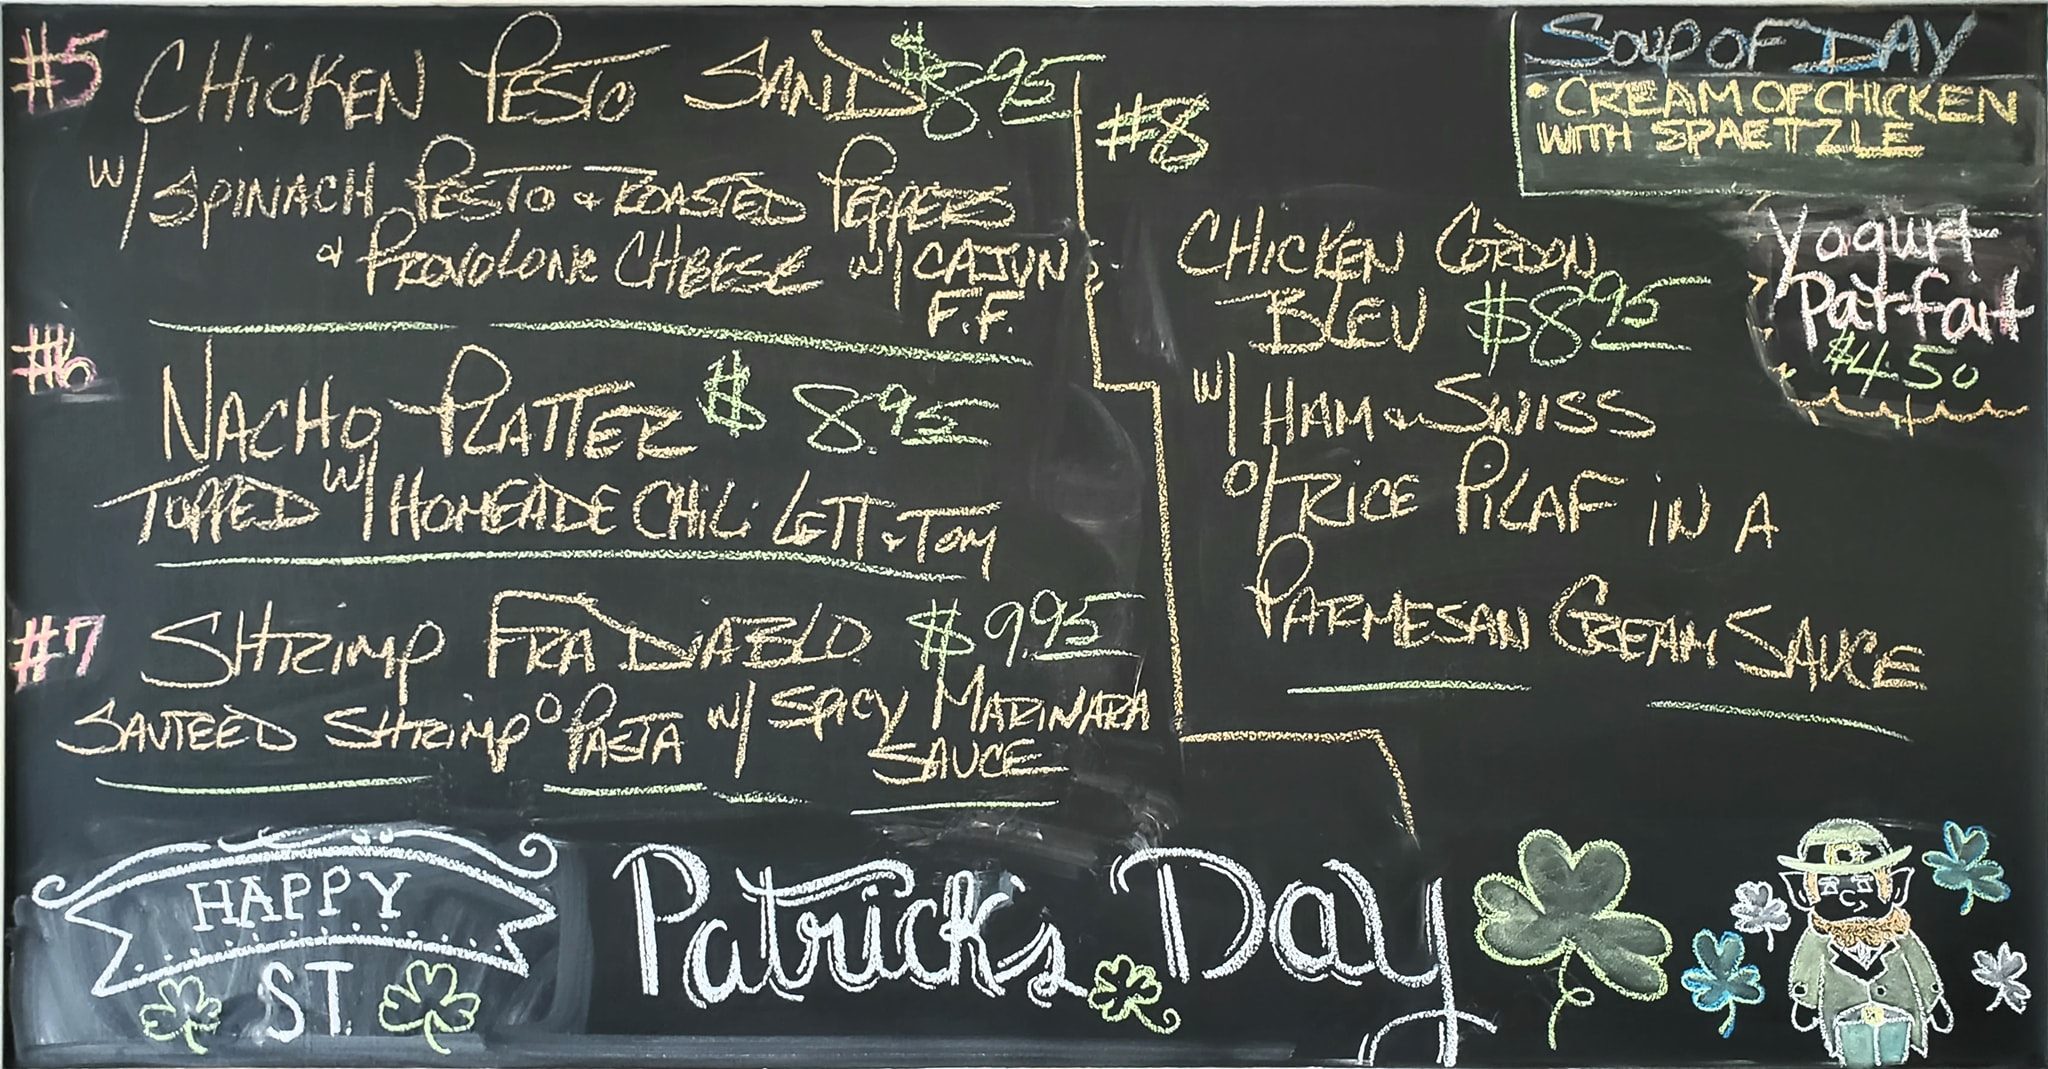 #5 CHICKEN PESTO SAND $8.95
W/ SPINACH PESTO & ROASTED PEPPERS
& PROVOLONE CHEESE W/ CAJUN
F.F.
#6
NACHO PLATTER $8.95
TOPPED W/ HOMEADE CHILI LETT & TOM
#7 SHRIMP FRA DIABLO $9.95
SAUTEED SHRIMP O PASTA W/ SPICY MARINARA
SAUCE
#8
CHICKEN CORDON
BLEU $8.95
W/ HAM & SWISS
O/ RICE PILAF IN A
PARMESAN CREAM SAUCE
SOUP OF DAY
• CREAM OF CHICKEN
WITH SPAETZLE
Yogurt
Parfait
$4.50
HAPPY
ST.
Patrick's Day